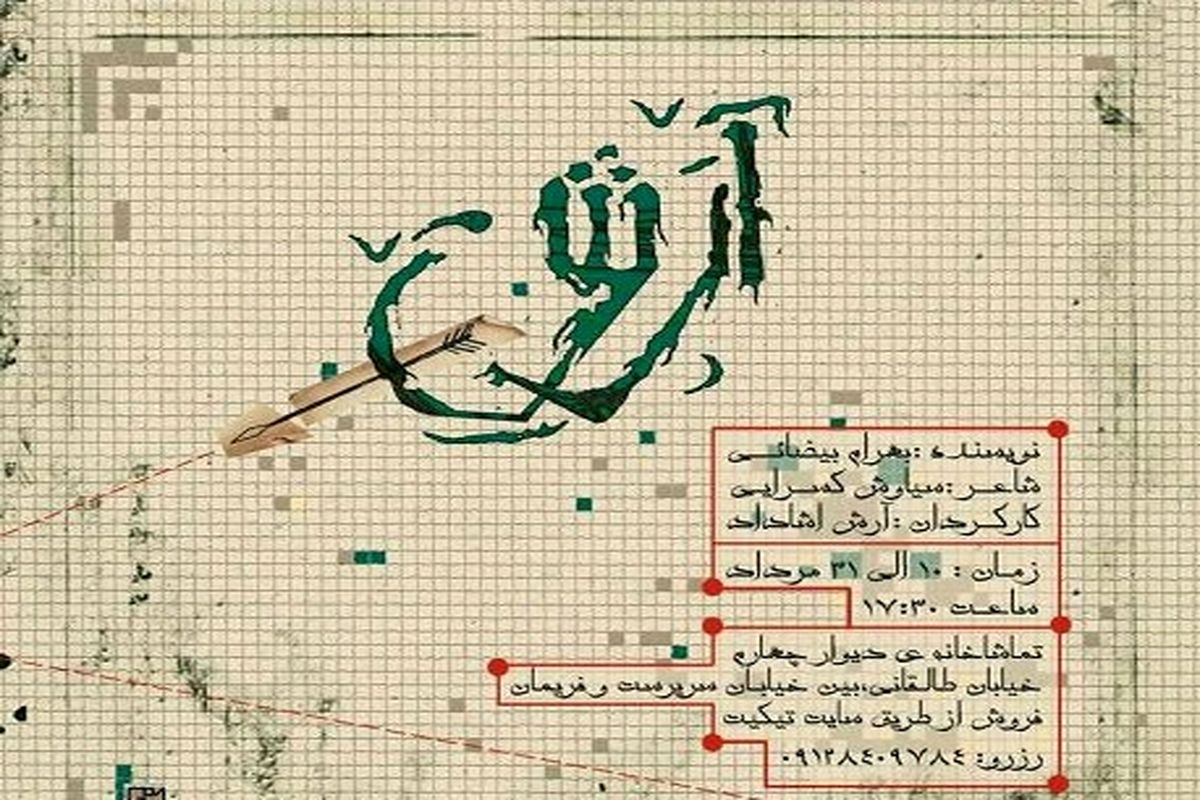 آرش
نویسنده :بهرام بیضائی
شاعر :سیاوش کسرایی
کارگردان :آرش اشاداد
زمان : ۱۰ الی ۳۱ مرداد
ساعت ۱۷:۳۰
تماشاخانه ی دیوار چهارم
خیابان طالقانی،بین خیابان سرپرست و فریمان
فروش از طریق سایت تیکیت
رزرو: ۰۹۱۲۸۴۰۹۷۸۴